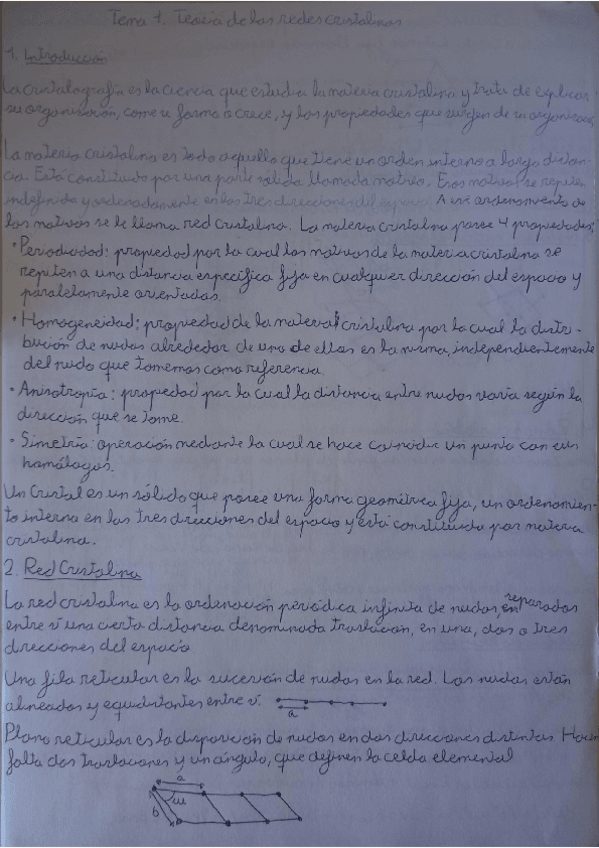 Tema 1. Teoría de las redes cristalinas
1. Introducción
La cristalografía es la ciencia que estudia la materia cristalina y trata de explicar
su organización, como se forma o crece, y las propiedades que surgen de su organización.
La materia cristalina es todo aquello que tiene un orden interno a larga distan-
cia. Está constituido por una parte sólida llamada motivo. Esos motivos se repiten
indefinida y ordenadamente en las tres direcciones del espacio. A ese ordenamiento de
los motivos se le llama red cristalina. La materia cristalina posee 4 propiedades:
• Periodicidad: propiedad por la cual los motivos de la materia cristalina se
repiten a una distancia específica fija en cualquier dirección del espacio y
paralelamente orientados.
• Homogeneidad: propiedad de la materia cristalina por la cual la distri-
bución de nudos alrededor de uno de ellos es la misma, independientemente
del nudo que tomemos como referencia.
• Anisotropía: propiedad por la cual la distancia entre nudos varía según la
dirección que se tome.
• Simetría: operación mediante la cual se hace coincidir un punto con sus
homólogos.
Un Cristal es un sólido que posee una forma geométrica fija, un ordenamien-
to interno en las tres direcciones del espacio y está constituida por materia
cristalina.
2. Red Cristalina
La red cristalina es la ordenación periódica infinita de nudos, separados
entre sí una cierta distancia denominada traslación, en una, dos o tres
direcciones del espacio
Una fila reticular es la sucesión de nudos en la red. Los nudos están
alineados y equidistantes entre sí.
a
Plano reticular es la disposición de nudos en dos direcciones distintas. Hacen
falta dos traslaciones y un ángulo, que definen la celda elemental
a
b
ω